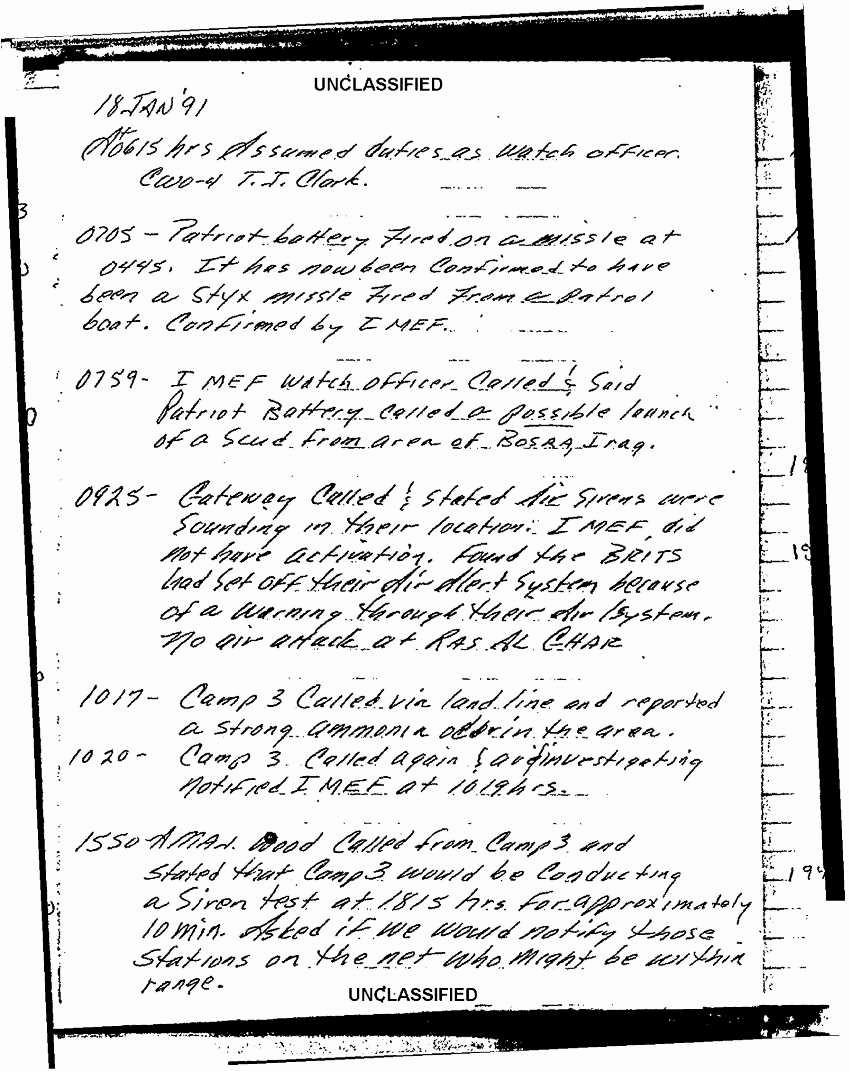 UNCLASSIFIED
18 JAN '91
At 0615 hrs Assumed duties as watch officer.
CWO-4 T.J. Clark.
0705 - Patriot battery Fired on a missle at
0445. It has now been Confirmed to have
been a Styx missle Fired From a Patrol
boat. Confirmed by I MEF.
0759 - I MEF watch officer Called & Said
Patriot Battery called a possible launch
of a Scud from area of BOSRA, Iraq.
0925 - Gateway Called & stated Air Sirens were
Sounding in their location. I MEF did
not have activation. Found the BRITS
had set off their Air Alert System because
of a Warning through their Air System.
No air attack at RAS AL GHAR
1017 - Camp 3 Called via land line and reported
a strong ammonia odor in the area.
1020 - Camp 3 Called again & investigating
Notified I MEF at 1019 hrs.
1550 - MAJ. Wood Called from Camp 3 and
stated that Camp 3 would be Conducting
a Siren test at 1815 hrs for approximately
10 min. Asked if we would notify those
stations on the net who might be within
range.
UNCLASSIFIED